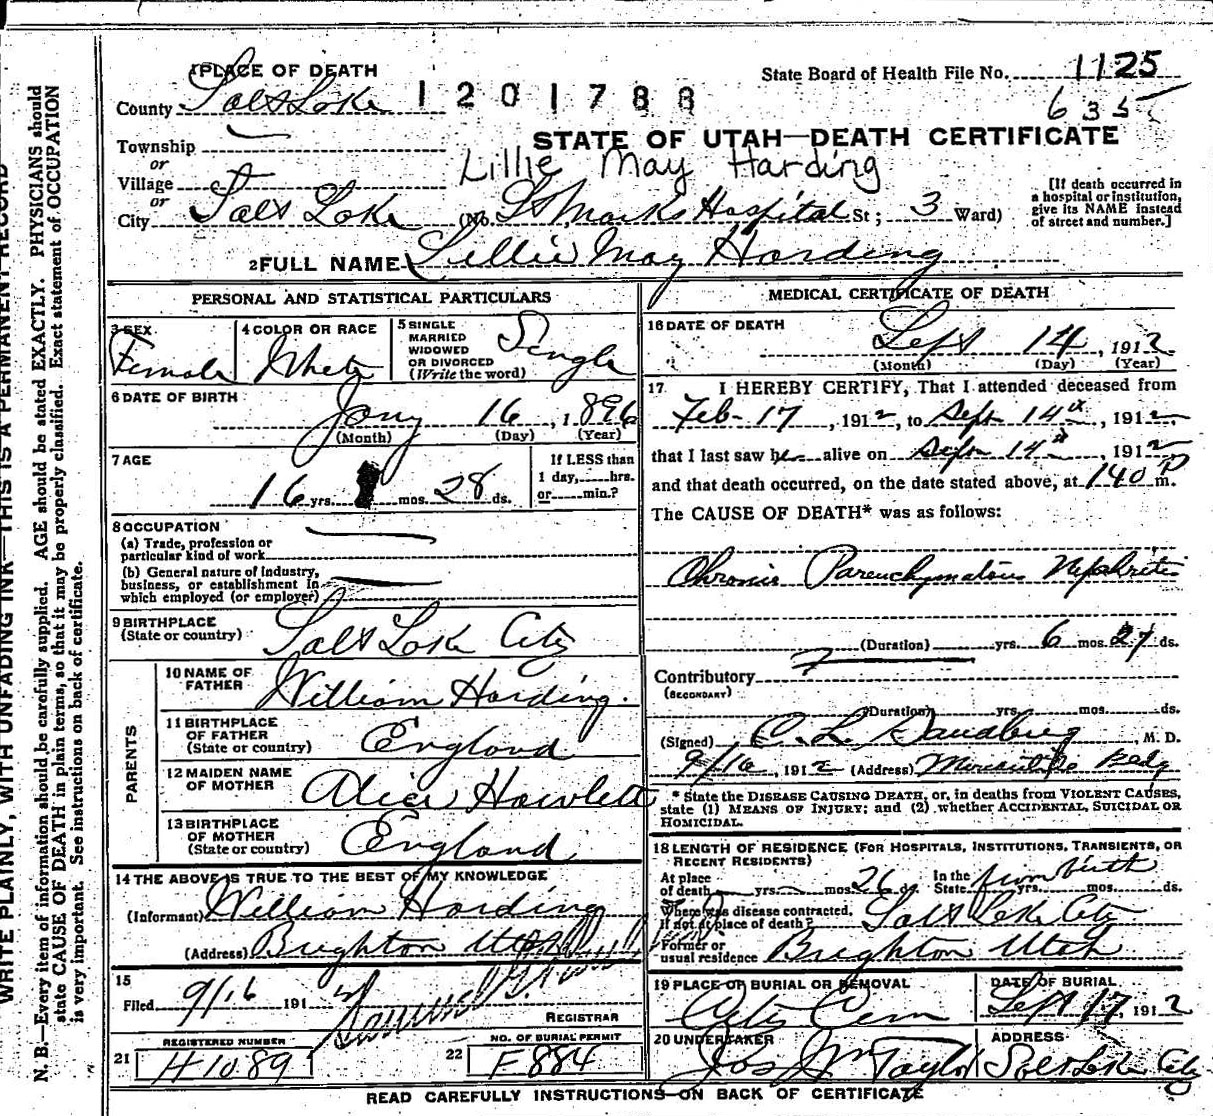 1 PLACE OF DEATH
State Board of Health File No. 1125
County Salt Lake 1201788
635
STATE OF UTAH—DEATH CERTIFICATE
Township
or
Lillie May Harding
Village
or
City Salt Lake (No. St Marks Hospital St; 3 Ward)
[If death occurred in a hospital or institution, give its NAME instead of street and number.]
2 FULL NAME Lillie May Harding
PERSONAL AND STATISTICAL PARTICULARS
3 SEX Female
4 COLOR OR RACE White
5 SINGLE MARRIED WIDOWED OR DIVORCED (Write the word) Single
6 DATE OF BIRTH
Jany 16, 1896
(Month) (Day) (Year)
7 AGE
16 yrs. mos. 28 ds.
If LESS than 1 day, hrs. or min.?
8 OCCUPATION
(a) Trade, profession or particular kind of work
(b) General nature of industry, business, or establishment in which employed (or employer)
9 BIRTHPLACE (State or country) Salt Lake City
PARENTS
10 NAME OF FATHER William Harding.
11 BIRTHPLACE OF FATHER (State or country) England
12 MAIDEN NAME OF MOTHER Alice Howlett
13 BIRTHPLACE OF MOTHER (State or country) England
14 THE ABOVE IS TRUE TO THE BEST OF MY KNOWLEDGE
(Informant) William Harding
(Address) Brighton Utah
15
Filed 9/16 191 2
REGISTRAR
REGISTERED NUMBER
21 H1089
NO. OF BURIAL PERMIT
22 F884
MEDICAL CERTIFICATE OF DEATH
16 DATE OF DEATH
Sept 14, 1912
(Month) (Day) (Year)
17 I HEREBY CERTIFY, That I attended deceased from
Feb-17, 1912, to Sept 14th, 1912
that I last saw her alive on Sept 14th, 1912
and that death occurred, on the date stated above, at 140 P m.
The CAUSE OF DEATH* was as follows:
Chronic Parenchymatous Nephritis
(Duration) yrs. 6 mos. 27 ds.
Contributory
(SECONDARY)
(Duration) yrs. mos. ds.
(Signed) C. L. Sandberg, M. D.
9/16, 1912 (Address) Mercantile Bldg
* State the DISEASE CAUSING DEATH, or, in deaths from VIOLENT CAUSES, state (1) MEANS OF INJURY; and (2) whether ACCIDENTAL, SUICIDAL OR HOMICIDAL.
18 LENGTH OF RESIDENCE (FOR HOSPITALS, INSTITUTIONS, TRANSIENTS, OR RECENT RESIDENTS)
At place of death yrs. mos. 26 ds. In the State from birth yrs. mos. ds.
Where was disease contracted, if not at place of death? Salt Lake City
Former or usual residence Brighton Utah
19 PLACE OF BURIAL OR REMOVAL City Cem
DATE OF BURIAL Sept 17, 1912
20 UNDERTAKER Jos Wm Taylor
ADDRESS Salt Lake City
READ CAREFULLY INSTRUCTIONS ON BACK OF CERTIFICATE
WRITE PLAINLY, WITH UNFADING INK—THIS IS A PERMANENT RECORD
N. B.—Every item of information should be carefully supplied. AGE should be stated EXACTLY. PHYSICIANS should
state CAUSE OF DEATH in plain terms, so that it may be properly classified. Exact statement of OCCUPATION
is very important. See instructions on back of certificate.